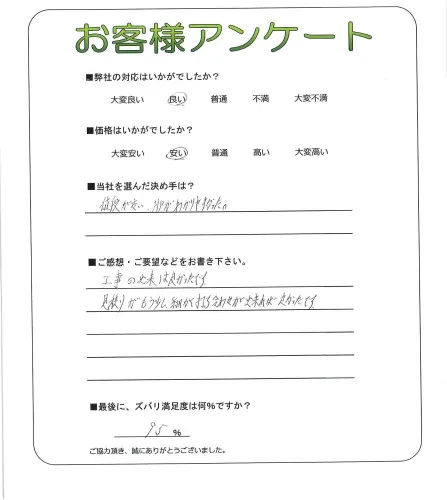 お客様アンケート
■弊社の対応はいかがでしたか？
大変良い 良い 普通 不満 大変不満
■価格はいかがでしたか？
大変安い 安い 普通 高い 大変高い
■当社を選んだ決め手は？
値段が安い、がわかりやすかった。
■ご感想・ご要望などをお書き下さい。
工事の出来は良かったです
見積りがもう少し細かく打ち合わせが出来れば良かったです。
■最後に、ズバリ満足度は何％ですか？
95 ％
ご協力頂き、誠にありがとうございました。